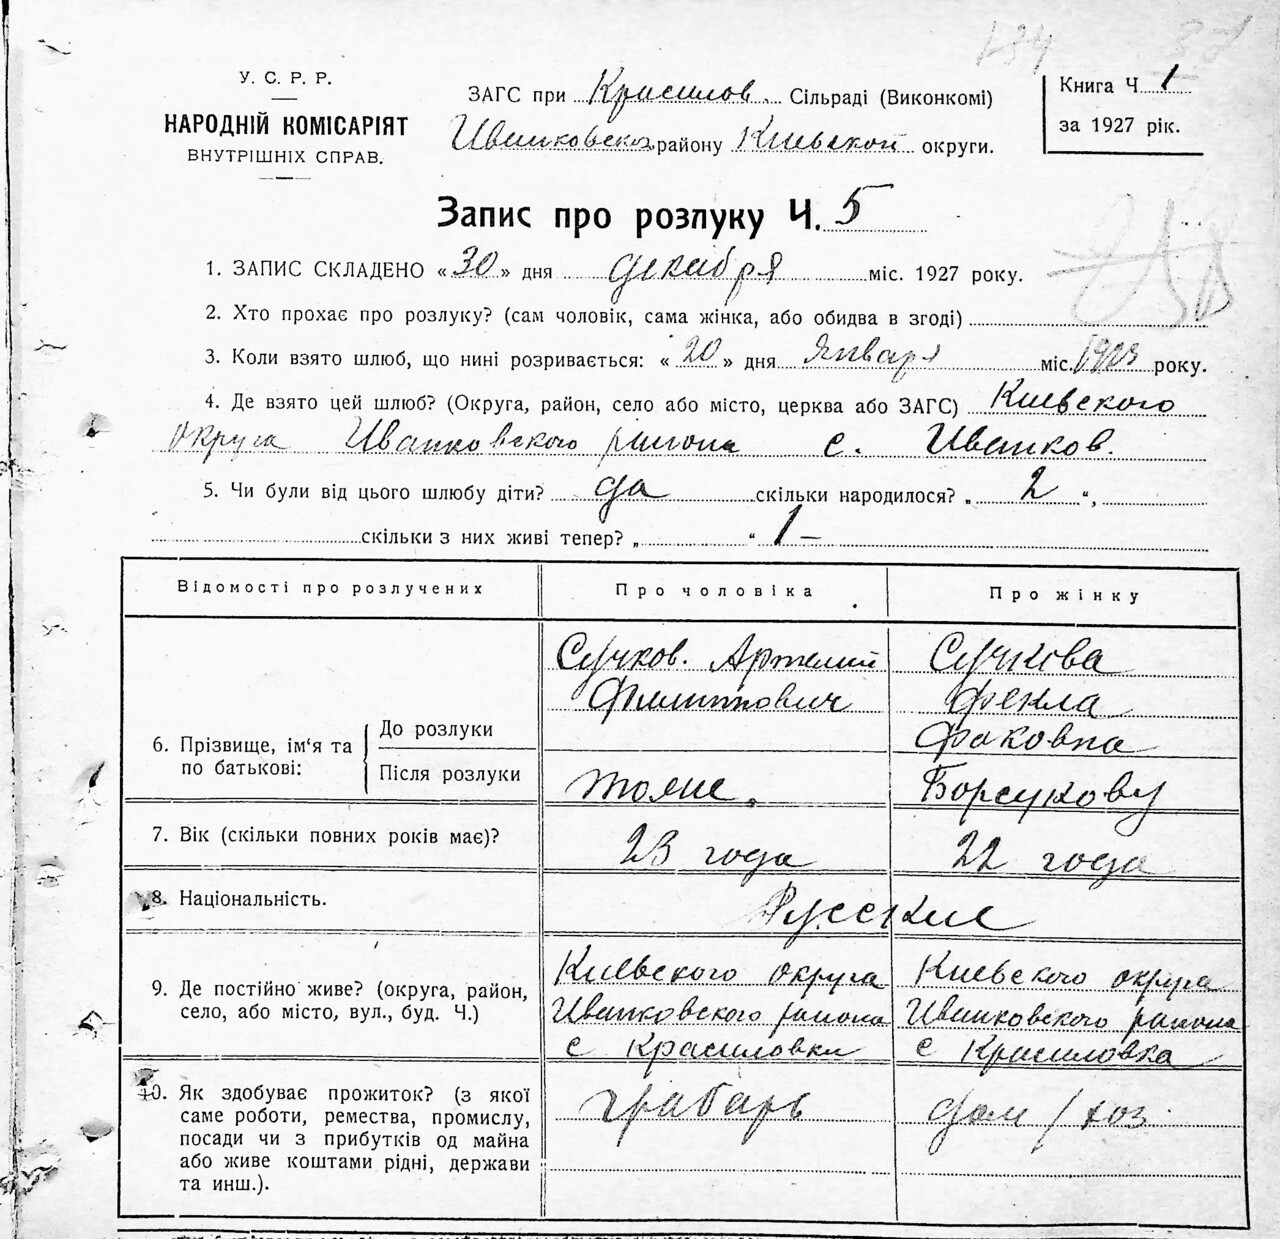 184
У. С. Р. Р.
НАРОДНІЙ КОМІСАРІЯТ
ВНУТРІШНІХ СПРАВ.
ЗАГС при Красилов. Сільраді (Виконкомі)
Иванковском району Киевской округи.
Книга Ч 1
за 1927 рік.
Запис про розлуку Ч. 5
1. ЗАПИС СКЛАДЕНО «30» дня декабря міс. 1927 року.
2. Хто прохає про розлуку? (сам чоловік, сама жінка, або обидва в згоді)
3. Коли взято шлюб, що нині розривається: «20» дня Января міс. 1923 року.
4. Де взято цей шлюб? (Округа, район, село або місто, церква або ЗАГС) Киевского
округа Иванковского района с. Иванков.
5. Чи були від цього шлюбу діти? да скільки народилося? „ 2 “,
скільки з них живі тепер? „ “ 1 –
Відомості про розлучених Про чоловіка Про жінку
6. Прізвище, ім‘я та по батькові:
До розлуки
Сучков. Артемий
Филиппович
Сучкова
Фекла
Факовна
Після розлуки
тоже.
Борсукову
7. Вік (скільки повних років має)? 23 года 22 года
8. Національність. Русские
9. Де постійно живе? (округа, район,
село, або місто, вул., буд. Ч.)
Киевского округа
Иванковского района
с Красиловки
Киевского округа
Иванковского района
с Красиловка
10. Як здобуває прожиток? (з якої
саме роботи, ремества, промислу,
посади чи з прибутків од майна
або живе коштами рідні, держави
та инш.).
грабарь
дом / хоз.